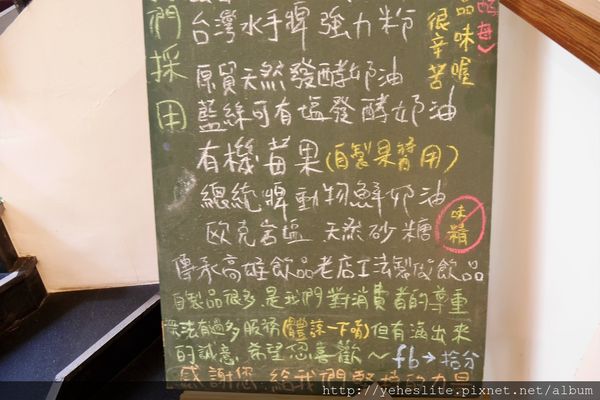 們採用
品味喔
很辛苦
酵母)
台灣水手牌強力粉
原貿天然發酵奶油
藍絲可有塩發酵奶油
有機莓果(自製果醬用)
總統牌動物鮮奶油
欧克岩塩 天然砂糖
味精
傳承高雄飲品老店工法製成飲品
自製品很多.是我們對消費者的尊重
無法有過多服務(體諒一下唷)但有滿出來
的誠意.希望您喜歡～fb→拾分
感謝您.給我們
http://yeheslite.pixnet.net/album